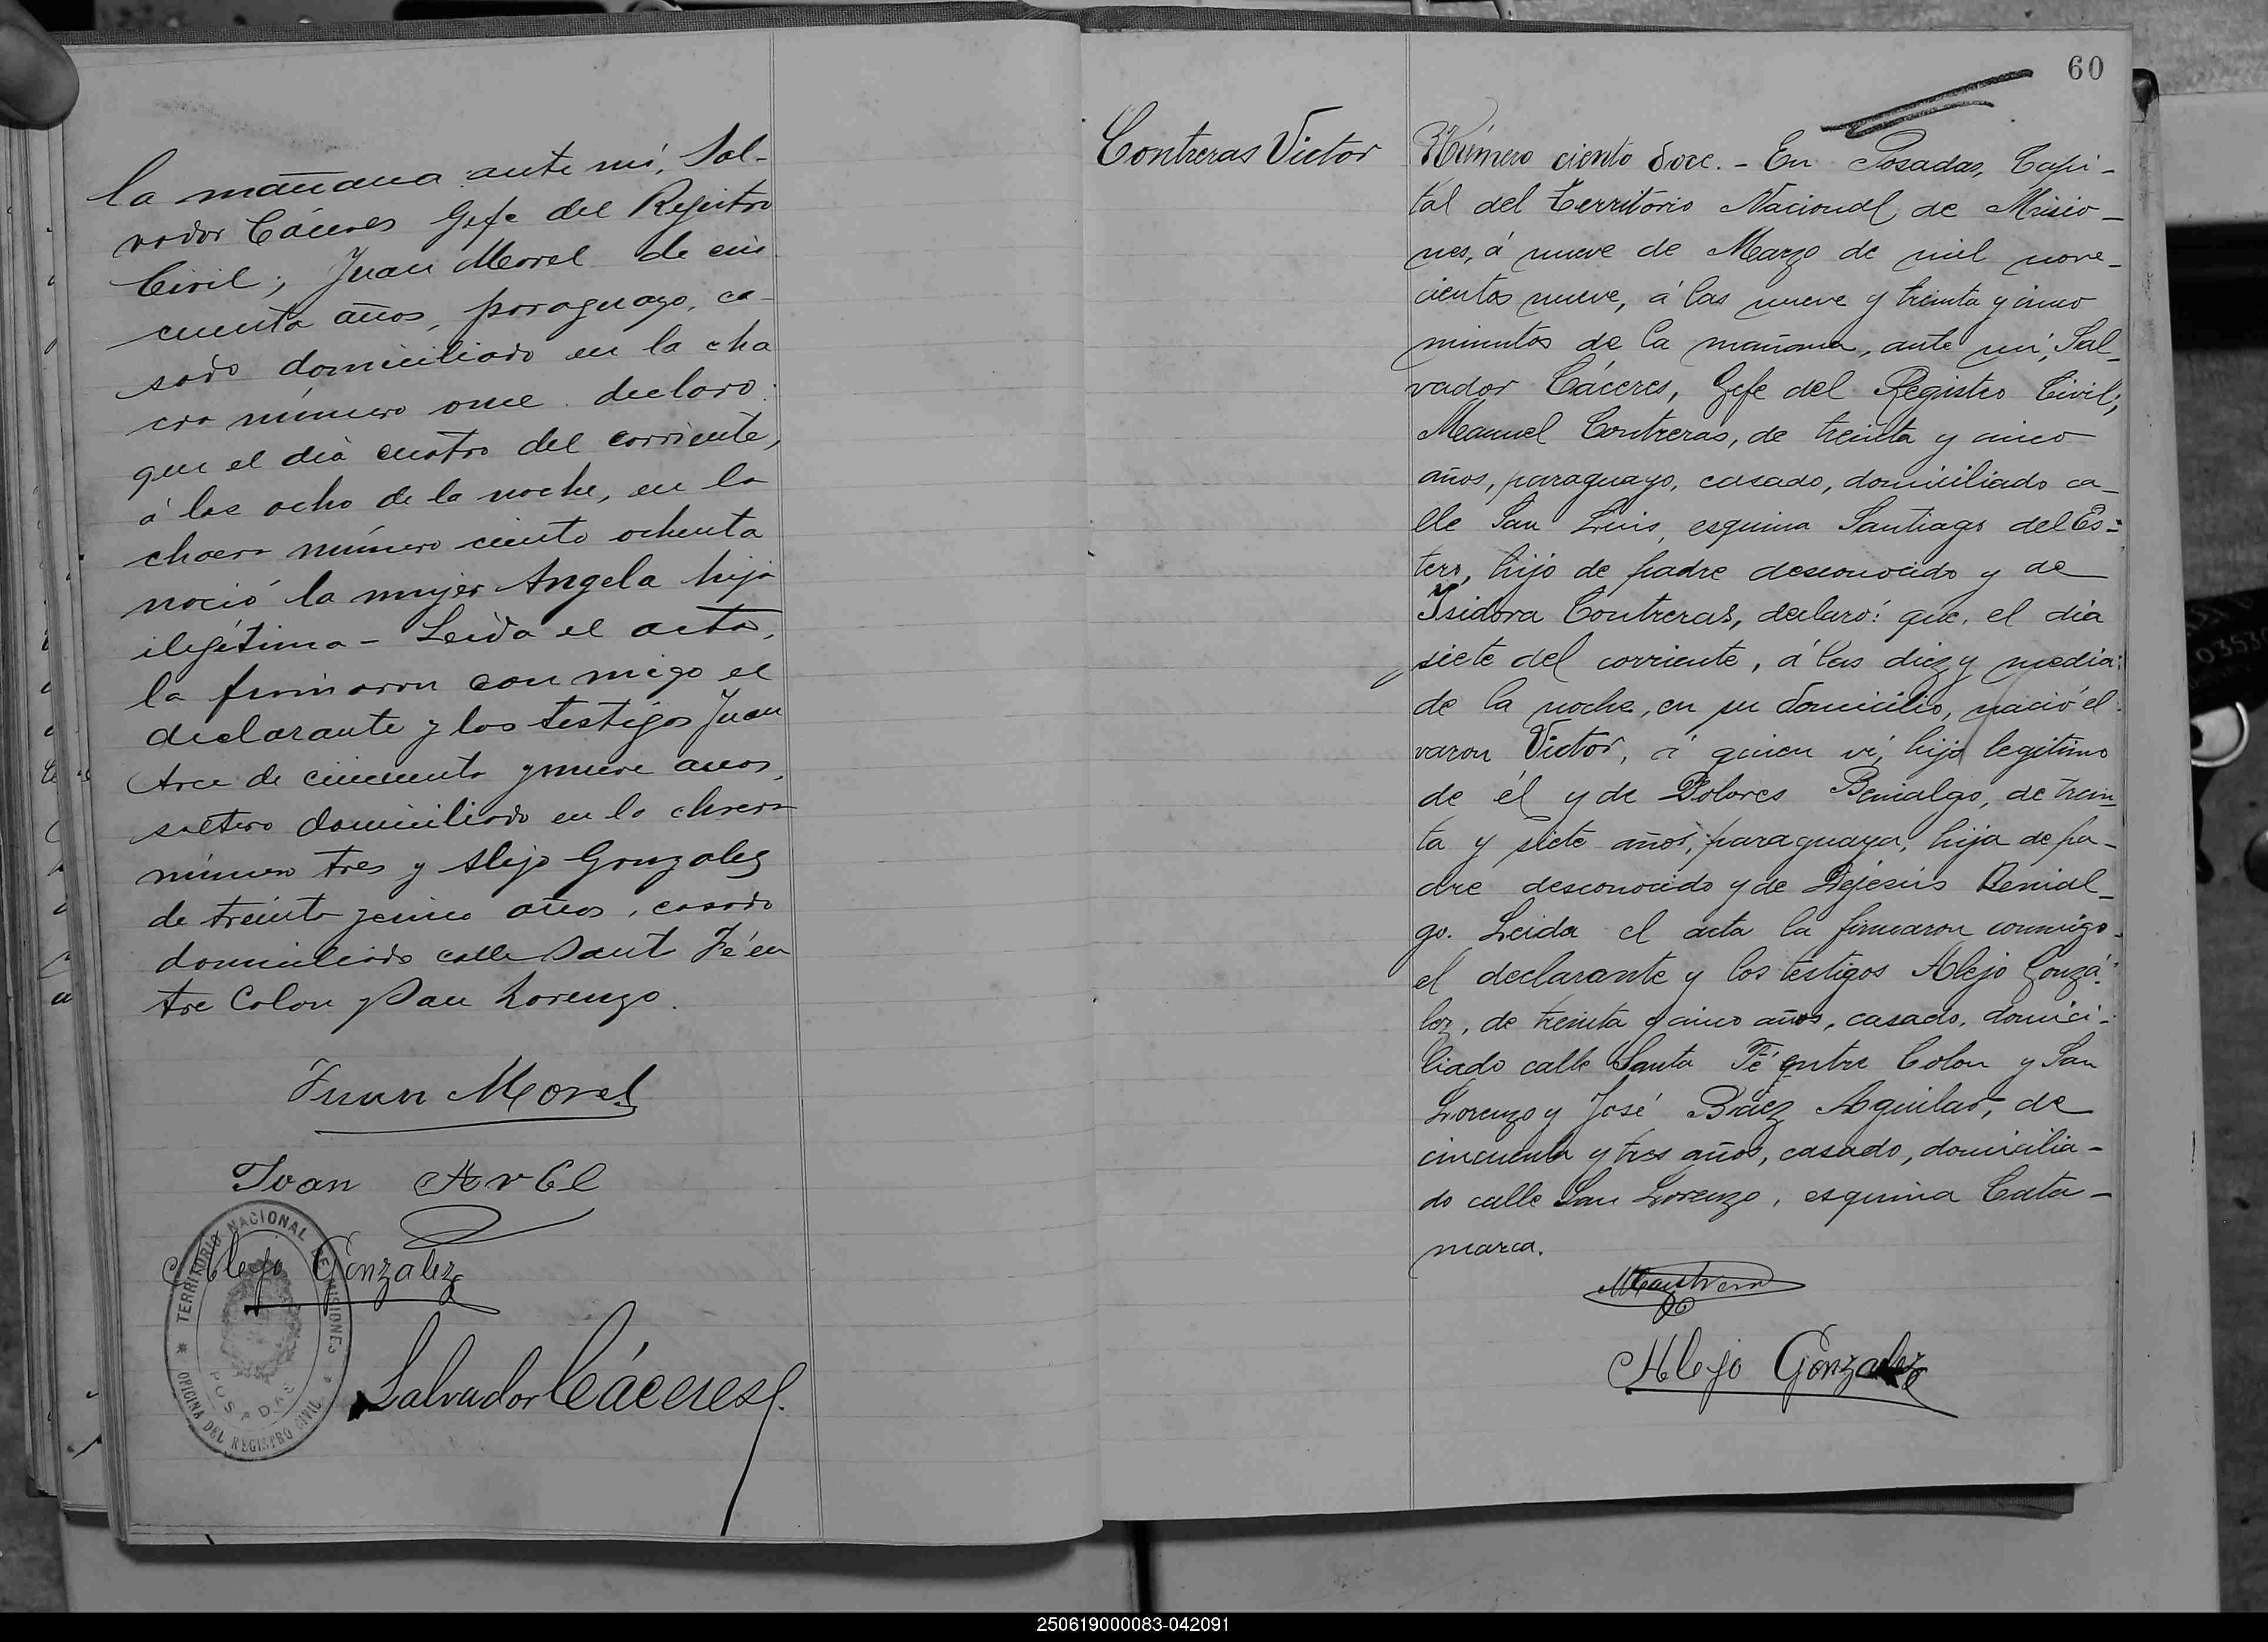 la mañana ante mí, Sal-
vador Cáceres Gefe del Registro
Civil; Juan Morel de cin
cuenta años, paraguayo, ca-
sado domiciliado en la cha
cra número once declaro:
que el día cuatro del corriente,
á las ocho de la noche, en la
chacra número ciento ochenta
nació la mujer Angela hija
ilegítima - Leída el acta,
la firmaron con migo el
declarante y los testigos Juan
Arce de cincuenta y nueve anos,
soltero domiciliado en la chacra
número tres y Alejo Gonzalez
de treinta y cinco años, casado
domiciliado calle Sant Fé en
tre Colon y San Lorenzo.
Juan Morel
Juan Arce
Alejo Gonzalez
TERRITORIO NACIONAL DE MISIONES
POSADAS
OFICINA DEL REGISTRO CIVIL
Salvador Cáceres
60
Contreras Victor
Número ciento doce. - En Posadas, Capi-
tal del Territorio Nacional de Misio-
nes, á nueve de Marzo de mil nove-
cientos nueve, á las nueve y treinta y cinco
minutos de la mañana, ante mí, Sal-
vador Cáceres, Gefe del Registro Civil;
Manuel Contreras, de treinta y cinco
años, paraguayo, casado, domiciliado ca-
lle San Luis, esquina Santiago del Es-
tero, hijo de padre desconocido y de
Isidora Contreras, declaró: que, el día
siete del corriente, á las diez y media
de la noche, en su domicilio, nació el
varon Victor, á quien ví, hijo legítimo
de él y de Dolores Benialgo, de trein
ta y siete años, paraguaya, hija de pa-
dre desconocido y de Dejesús Benial-
go. Leida el acta la firmaron conmigo
el declarante y los testigos Alejo Gonzá-
lez, de treinta y cinco años, casado, domici-
liado calle Santa Fé entre Colon y San
Lorenzo y José Báez Aguilar, de
cincuenta y tres años, casado, domicilia-
do calle San Lorenzo, esquina Cata-
marca.
MContreras
Alejo Gonzalez
250619000083-042091